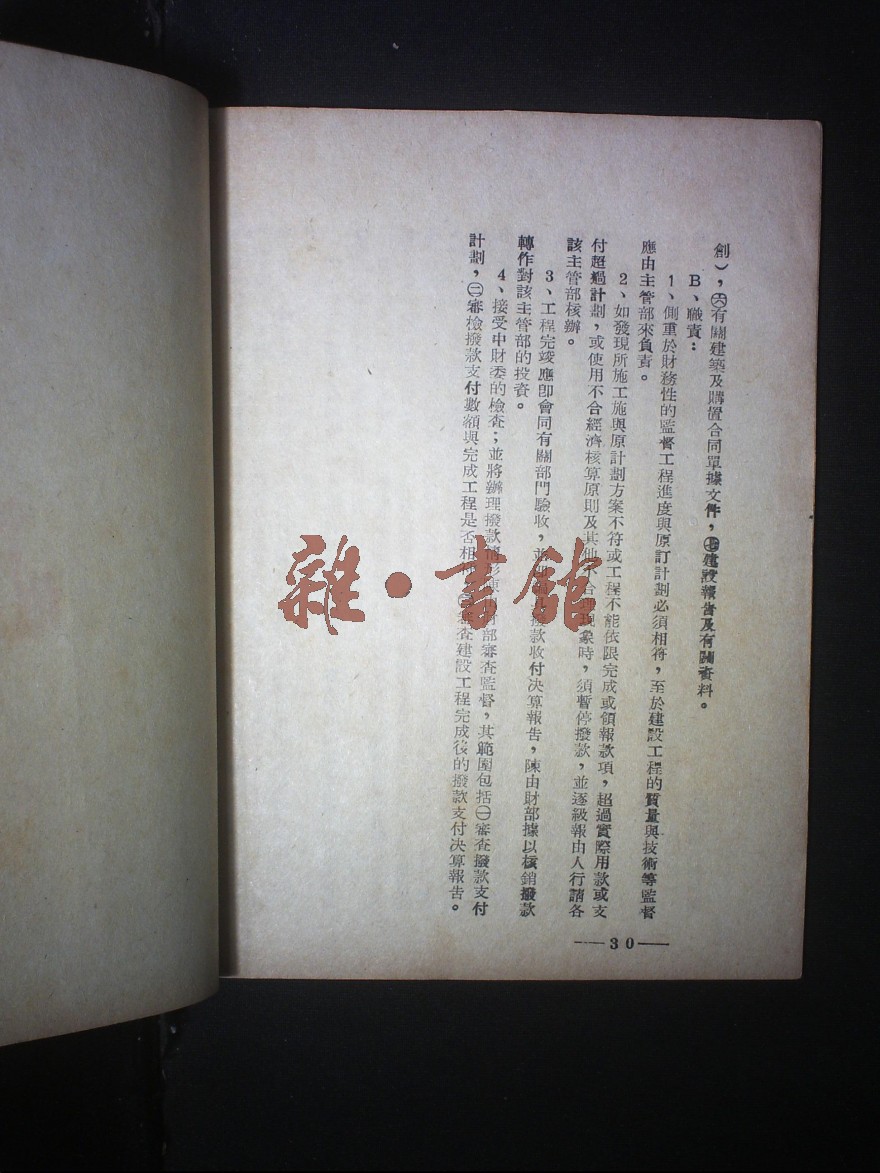 創），㊅有關建築及購置合同單據文件，㊆建設報告及有關資料。
B、職責：
1、側重於財務性的監督工程進度與原訂計劃必須相符，至於建設工程的質量與技術等監督
應由主管部來負責。
2、如發現所施工施與原計劃方案不符或工程不能依限完成或領報款項，超過實際用款或支
付超過計劃，或使用不合經濟核算原則及其他不合理現象時，須暫停撥款，並逐級報由人行請各
該主管部核辦。
3、工程完竣應卽會同有關部門驗收，並撥款收付决算報告，陳由財部據以核銷撥款
轉作對該主管部的投資。
4、接受中財委的檢查；並將辦理撥款情形財部審查監督，其範圍包括㊀審查撥款支付
計劃，㊁審檢撥款支付數額與完成工程是否相審查建設工程完成後的撥款支付决算報告。
——30——
雜·書館